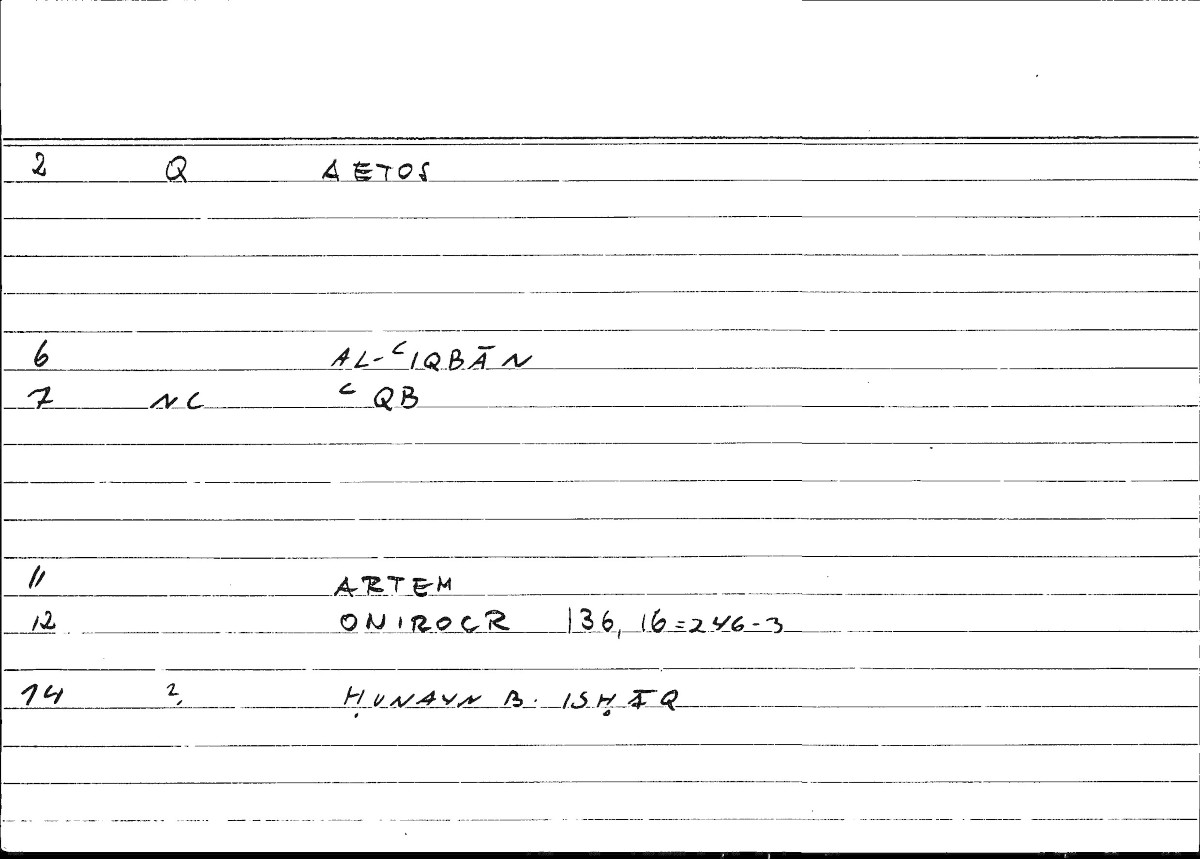 2 Q AETOS
6 AL-ʿIQBĀN
7 NC ʿQB
11 ARTEM
12 ONIROCR 136, 16=246-3
14 2. ḤUNAYN B. ISḤĀQ